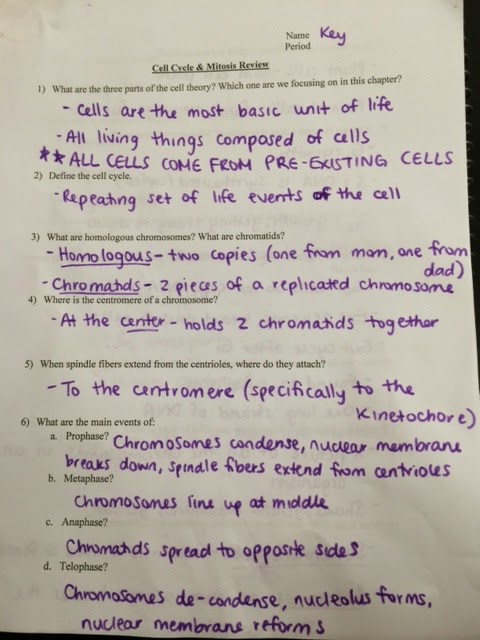 Name Key
Period
Cell Cycle & Mitosis Review
1) What are the three parts of the cell theory? Which one are we focusing on in this chapter?
- Cells are the most basic unit of life
- All living things composed of cells
** ALL CELLS COME FROM PRE-EXISTING CELLS
2) Define the cell cycle.
- Repeating set of life events of the cell
3) What are homologous chromosomes? What are chromatids?
- Homologous - two copies (one from mom, one from
dad)
- Chromatids - 2 pieces of a replicated chromosome
4) Where is the centromere of a chromosome?
- At the center - holds 2 chromatids together
5) When spindle fibers extend from the centrioles, where do they attach?
- To the centromere (specifically to the
kinetochore)
6) What are the main events of:
a. Prophase? Chromosomes condense, nuclear membrane
breaks down, spindle fibers extend from centrioles
b. Metaphase?
Chromosomes line up at middle
c. Anaphase?
Chromatids spread to opposite sides
d. Telophase?
Chromosomes de-condense, nucleolus forms,
nuclear membrane reforms